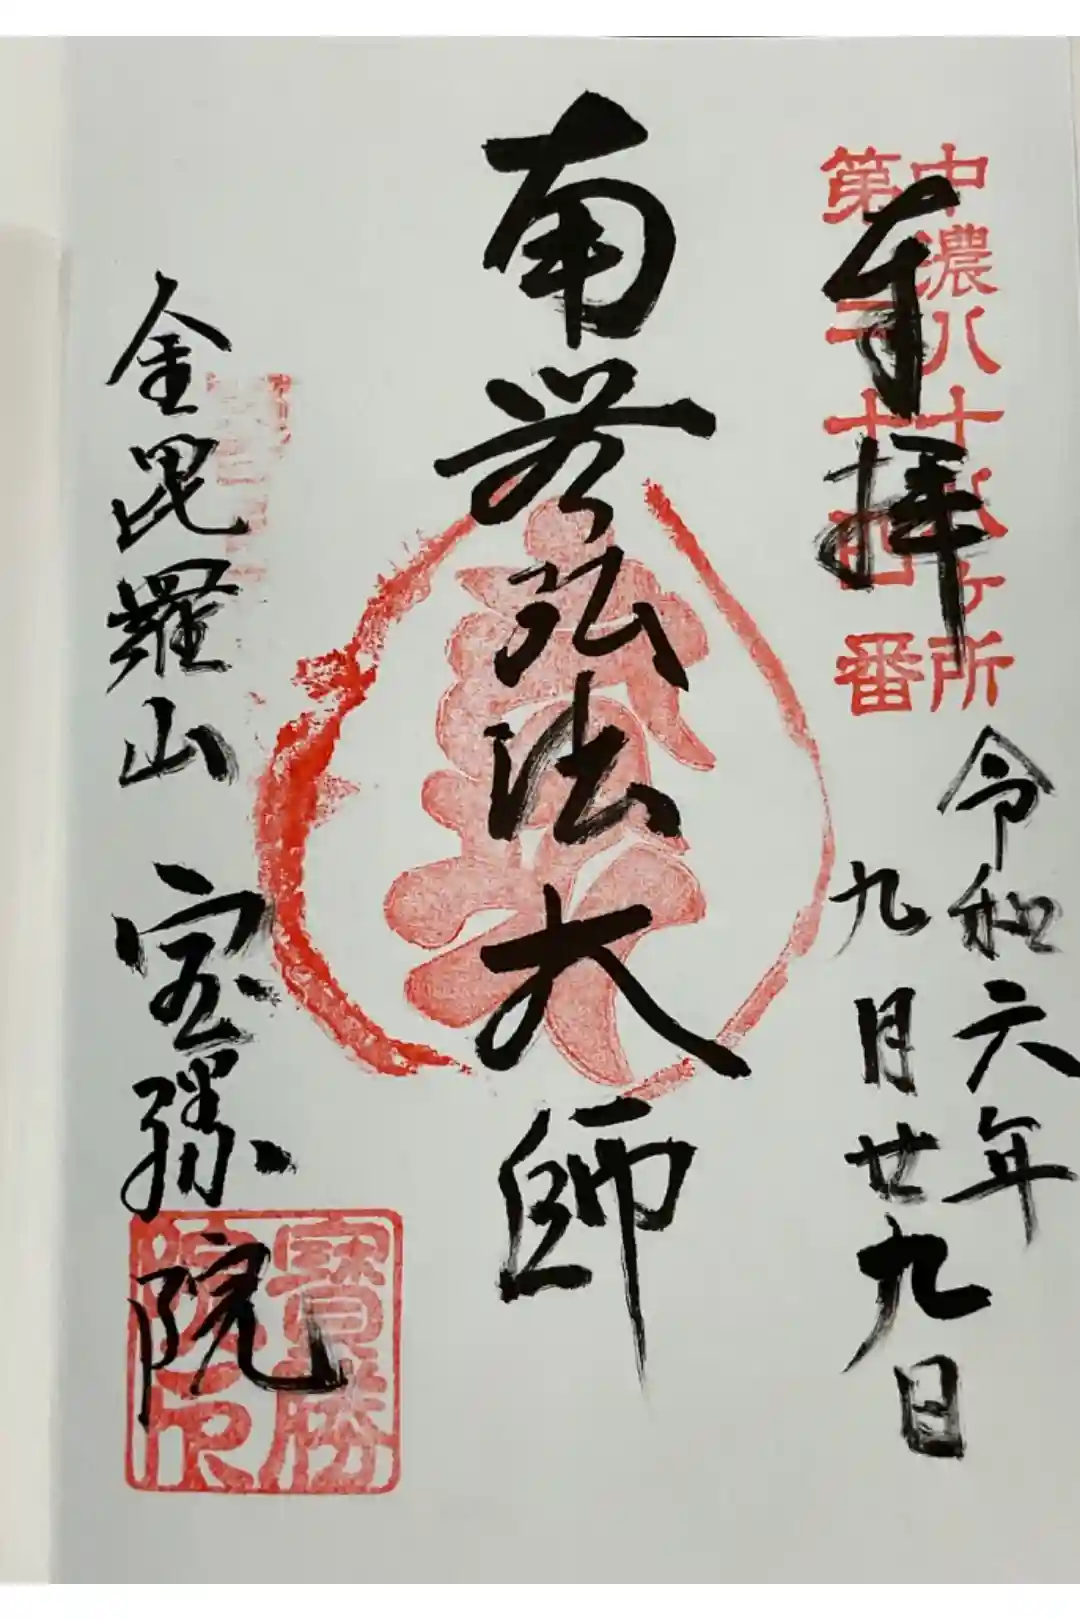 奉拝
中濃八十八ヶ所
第二十四番
令和六年
九月廿九日
南無弘法大師
金毘羅山 宝勝院
寶勝院印